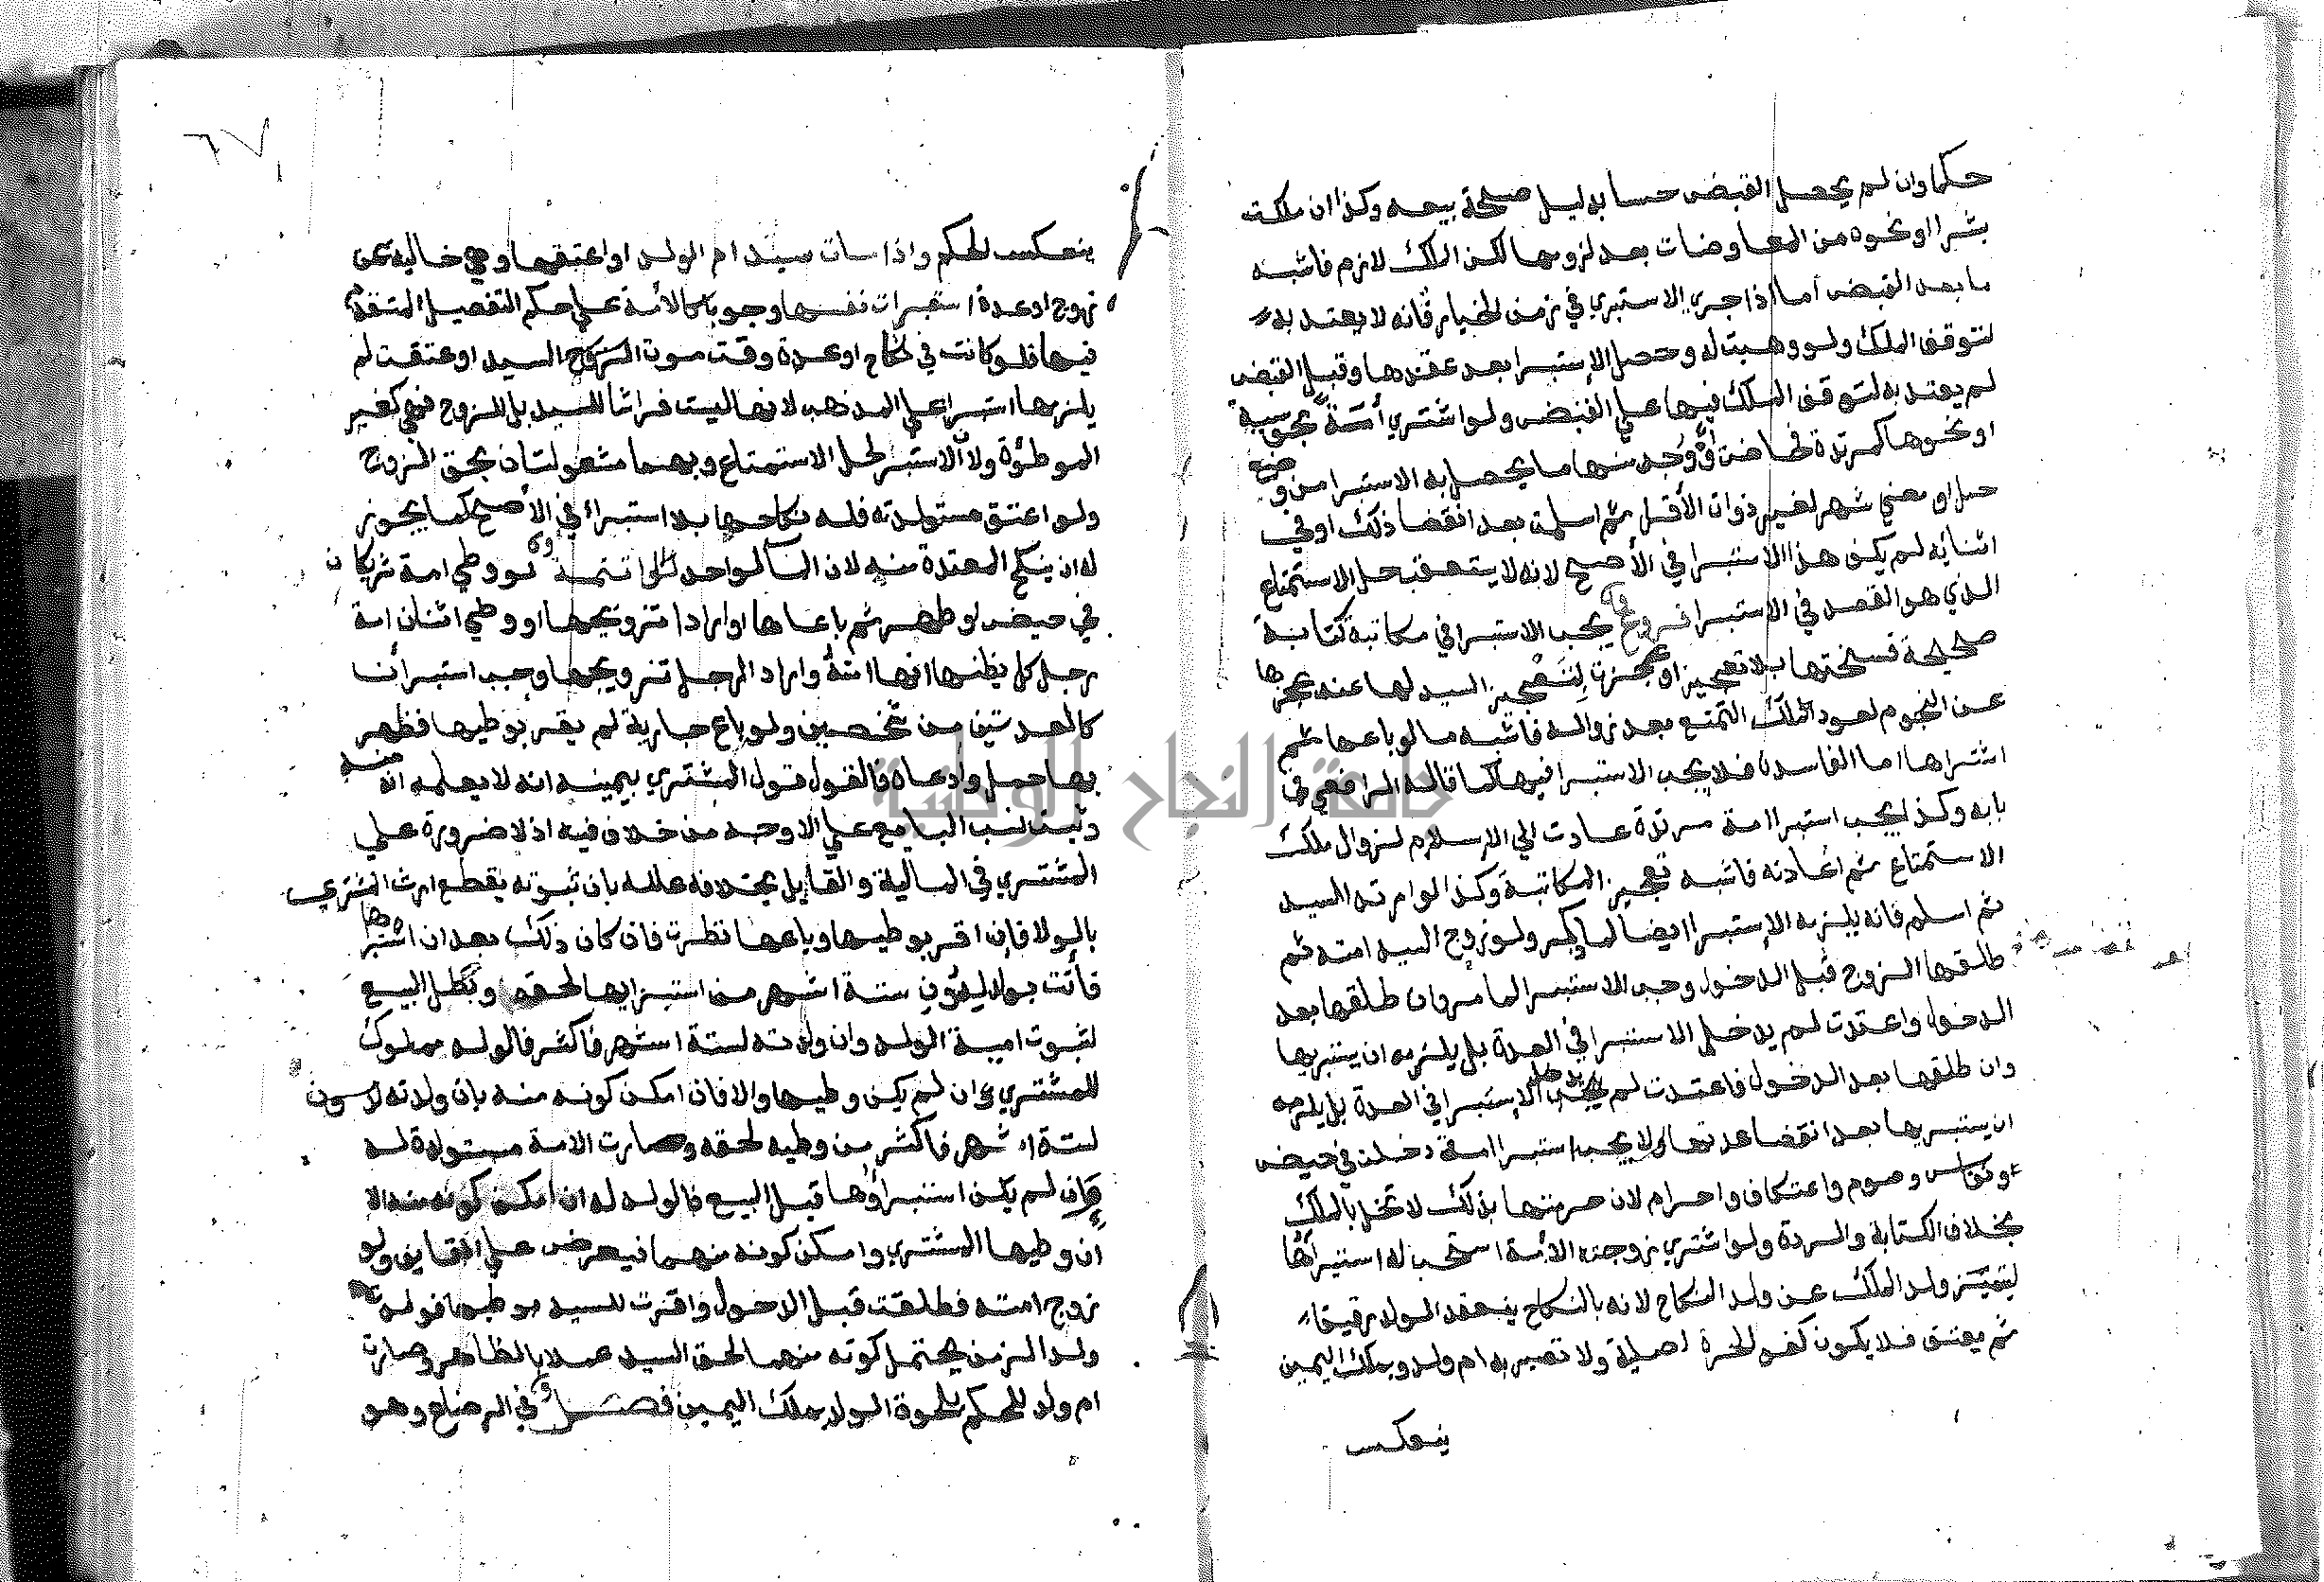 حكما وان لم يحصل القبض حسا بدليل صحة بيعه وكذا ان ملكت
بشرا او نحوه من المعاوضات بعد لزومها لان الملك لازم فاشبه
ما بعد القبض أما اذا جري الاستبري في زمن الخيار فانه لا يعتد به
لتوقف الملك ولو وهبت له وحصل الاستبرا بعد عقدها وقبل القبض
لم يعتد به لتوقف الملك فيها علي القبض ولو اشتري أمة مجوسية
او نحوها كمرتدة فحاضت او وجد منها ما يحصل به الاستبرا من وضع
حمل او مضي شهر لغير ذوات الأقرا ثم اسلمت بعد انقضا ذلك او في
اثنائه لم يكف هذا الاستبرا في الأصح لانه لا يتعقب حل الاستمتاع
الذي هو القصد في الاستبرا فروع يجب الاستبرا في مكاتبة كتابة
صحيحة فسختها بلا تعجيز او عجزت بتعجيز السيد لها عند عجزها
عن النجوم لعود ملك التمتع بعد زواله فاشبه ما لو باعها ثم
اشتراها اما الفاسدة فلا يجب الاستبرا فيها كما قاله الرافعي في
بابه وكذا يجب استبرا امة مرتدة عادت الي الإسلام لزوال ملك
الاستمتاع ثم اعادته فاشبه تعجيز المكاتبة وكذا لو ارتد السيد
ثم اسلم فانه يلزمه الإستبرا ايضا لما ذكر ولو زوج السيد امته ثم
طلقها الزوج قبل الدخول وجب الاستبرا لما مر وان طلقها بعد
الدخول واعتدت لم يدخل الاستبرا في العدة بل يلزمه ان يستبريها
وان طلقها بعد الدخول فاعتدت لم يدخل الإستبرا في العدة بل يلزمه
ان يستبريها بعد انقضا عدتها ولا يجب استبرا امة دخلت في حيض
ونفاس وصوم واعتكاف واحرام لان حرمتها بذلك لا تخل بالملك
بخلاف الكتابة والردة ولو اشتري زوجته الأمة استحب له استبراؤها
ليتميز ولد الملك عن ولد النكاح لانه بالنكاح ينعقد الولد رقيقا
ثم يعتق فلا يكون كفو لحرة اصلية ولا تصير به ام ولد وبملك اليمين
ينعكس
٦٧
ينعكس الحكم واذا مات سيد ام الولد او اعتقها وهي خالية عن
زوج او عدة استبرات نفسها وجوبا كالأمة علي حكم التفصيل المتقدم
فيها فلو كانت في نكاح او عدة وقت موت السيد او عتقت لم
يلزمها استبرا علي المذهب لانها ليست فراشا للسيد بل للزوج فهي كغير
الموطؤة ولأن الاستبرا لحل الاستمتاع وهما مشغولتان بحق الزوج
ولو اعتق مستولدته فله نكاحها بلا استبراء في الأصح كما يجوز
له ان ينكح المعتدة منه لان الما لواحد تتمة لو وطي امة شريكان
في حيض او طهر ثم باعاها او ارادا تزويجها او وطي اثنان امة
رجل كل يظنها انها امته واراد الرجل تزويجها وجب استبرأان
كالعدتين من شخصين ولو باع جارية لم يقر بوطيها فظهر
بها حمل وادعاه فالقول قول المشتري بيمينه انه لا يعلمه منه
وثبت نسب البايع علي الاوجه من خلاف فيه اذ لا ضرورة علي
المشتري في المالية والقايل بخلافه علله بان ثبوته يقطع ارث المشتري
بالولا فإن اقر بوطيها وباعها نظرت فان كان ذلك بعد ان استبرها
فأتت بولد لدون ستة اشهر من استبرايها لحقه وبطل البيع
لثبوت امية الولد وان ولدته لستة اشهر فاكثر فالولد مملوك
للمشتري ان لم يكن وطيها والا فان امكن كونه منه بان ولدته
لستة اشهر فاكثر من وطيه لحقه وصارت الامة مستولدة له
وان لم يكن استبراؤها قبل البيع فالولد له ان امكن كونه منه الا
ان وطيها المشتري وامكن كونه منهما فيعرض علي القايف ولو
زوج امته فطلقت قبل الدخول واقرت للسيد بوطيها فولدت
ولدا لزمن يحتمل كونه منهما لحق السيد عملا بالظاهر وصارت
ام ولد للحكم بلحوق الولد بملك اليمين فصل في الرضاع وهو
جامعة النجاح الوطنية